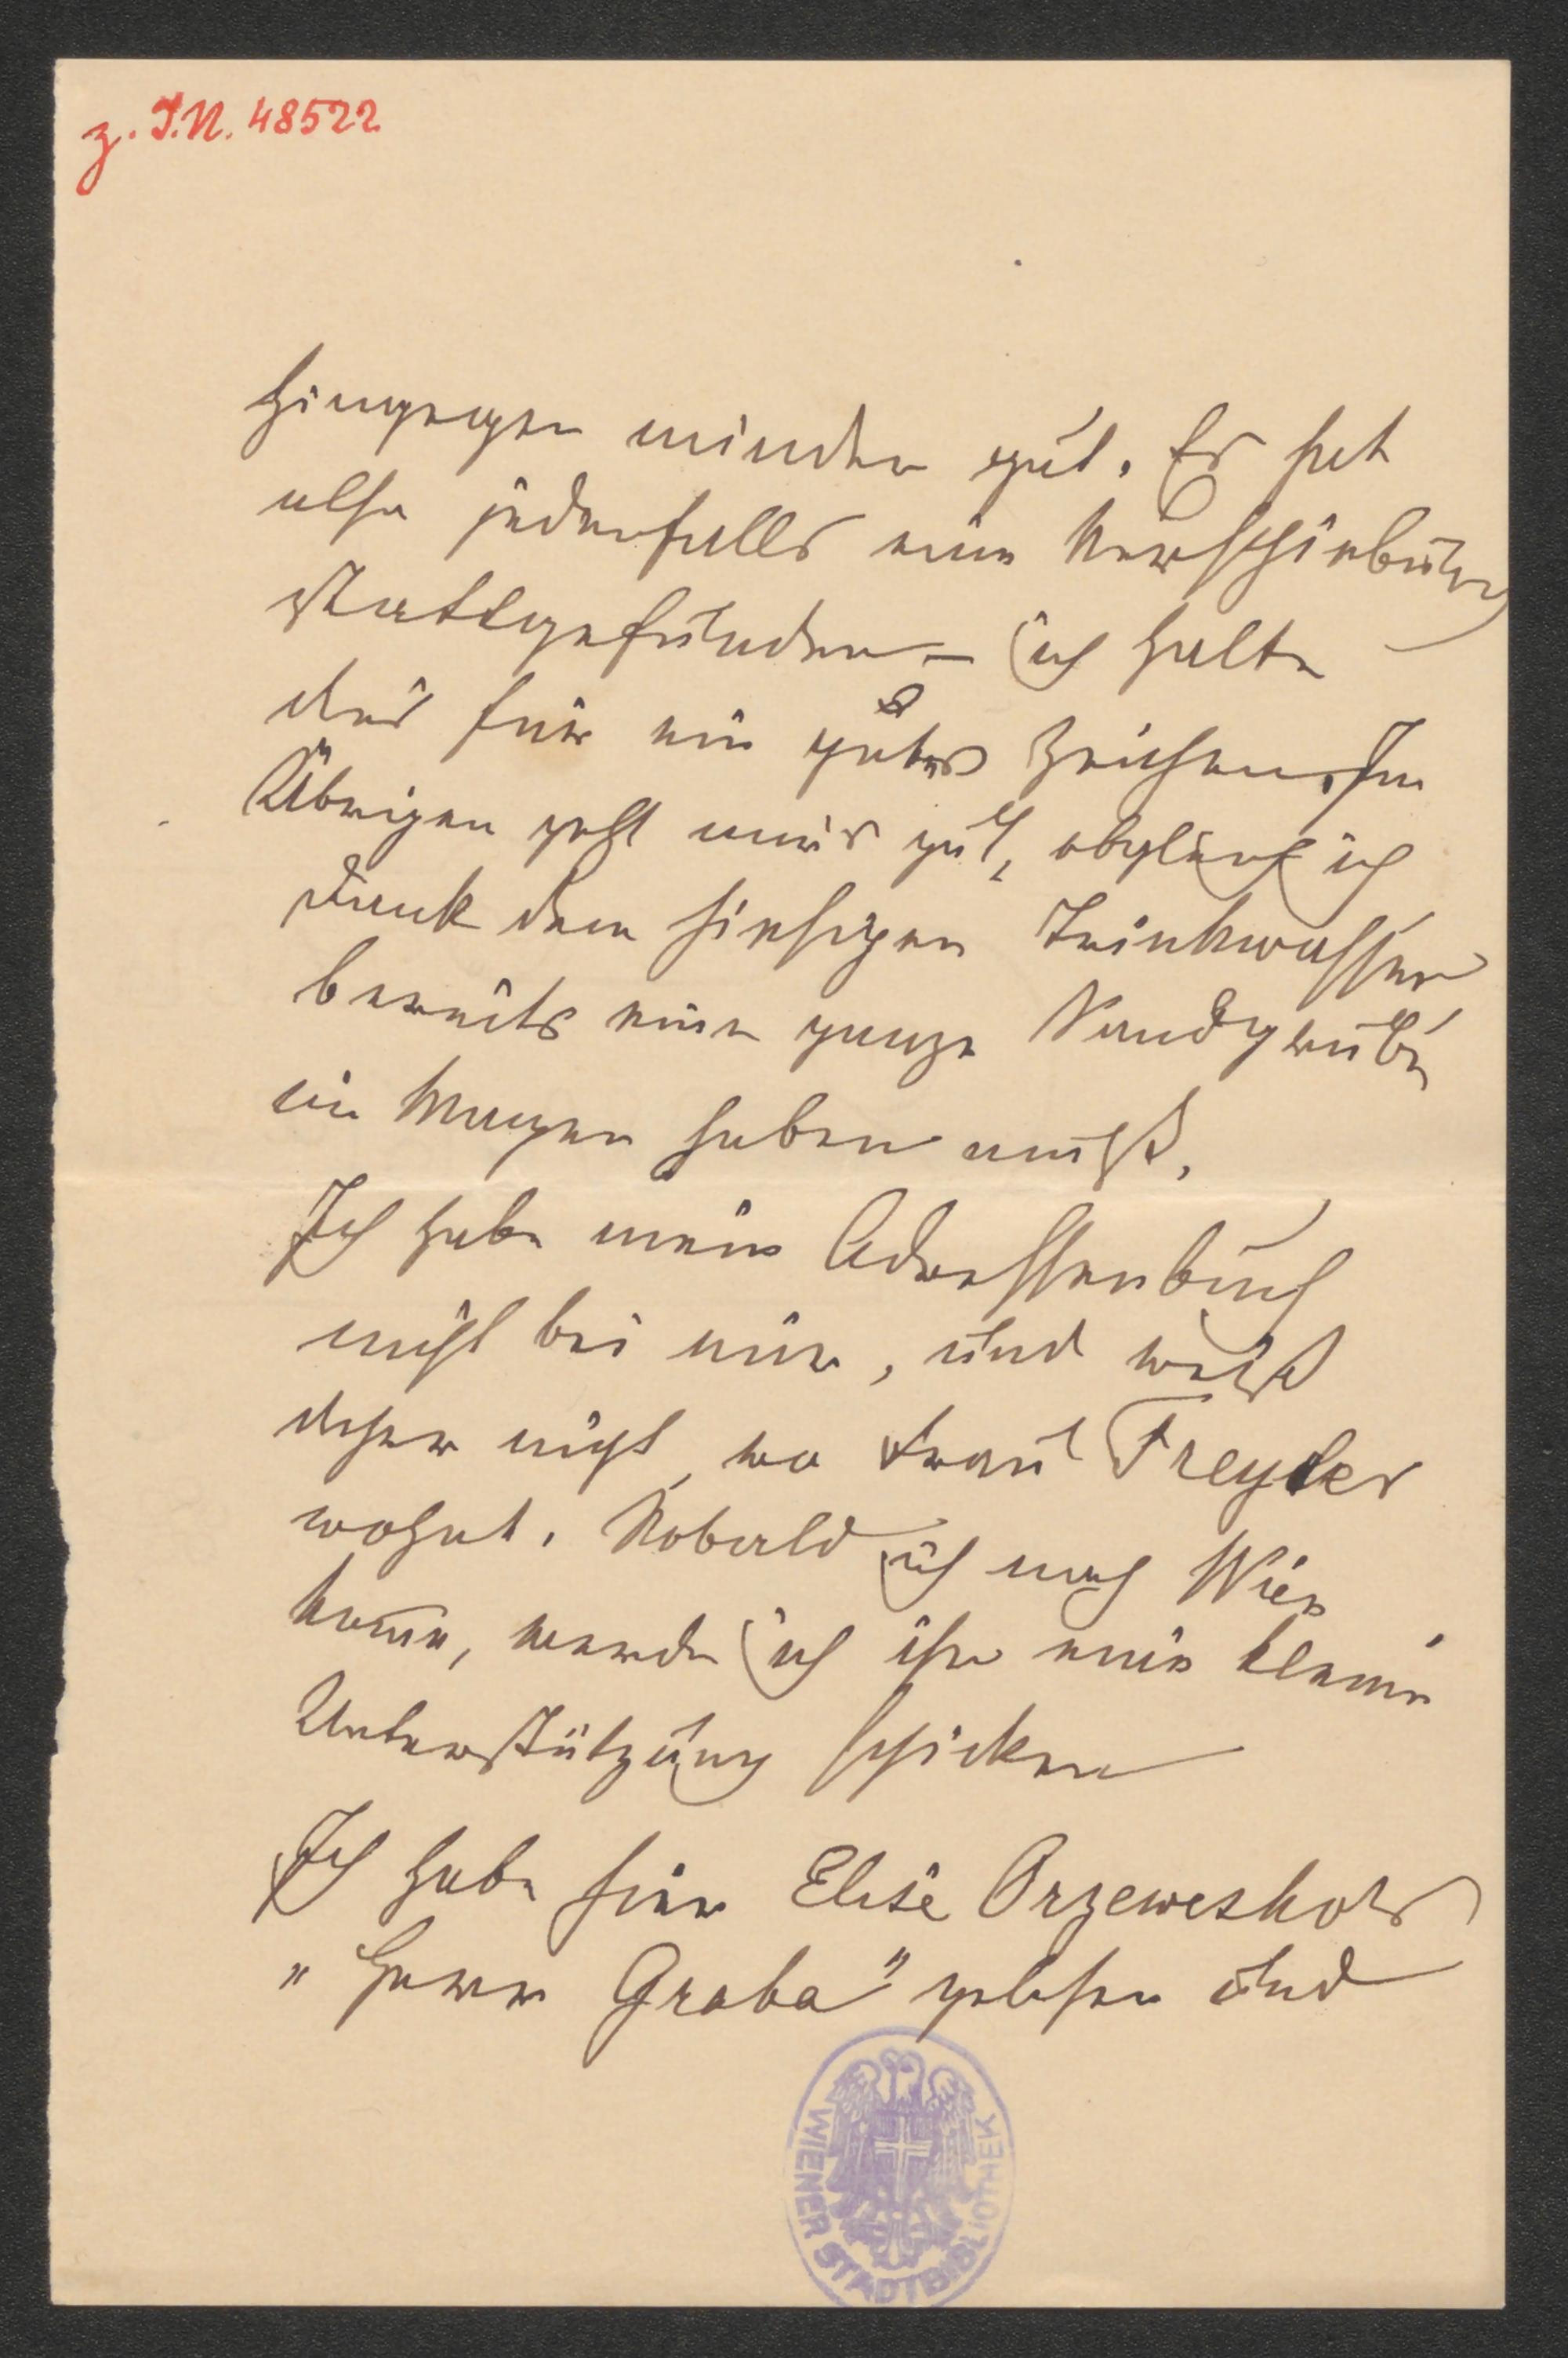 z. I.N. 48522
hingegen minder gut. Es hat
also jedenfalls eine Verschiebung
stattgefunden – ich halte
dies für ein gutes Zeichen. Im
Übrigen geht mirs gut, obgleich ich
Dank dem hiesigen Trinkwasser
bereits eine ganze Sandgrube
im Magen haben muß.
Ich habe mein Adressenbuch
nicht bei mir, und weiß
daher nicht, wo Frau Freyler
wohnt. Sobald ich nach Wien
kom̄e, werde ich ihr eine kleine
Unterstützung schicken
Ich habe hier Elise Orzeweskos
"Herrn Graba" gelesen und
WIENER STADTBIBLIOTHEK